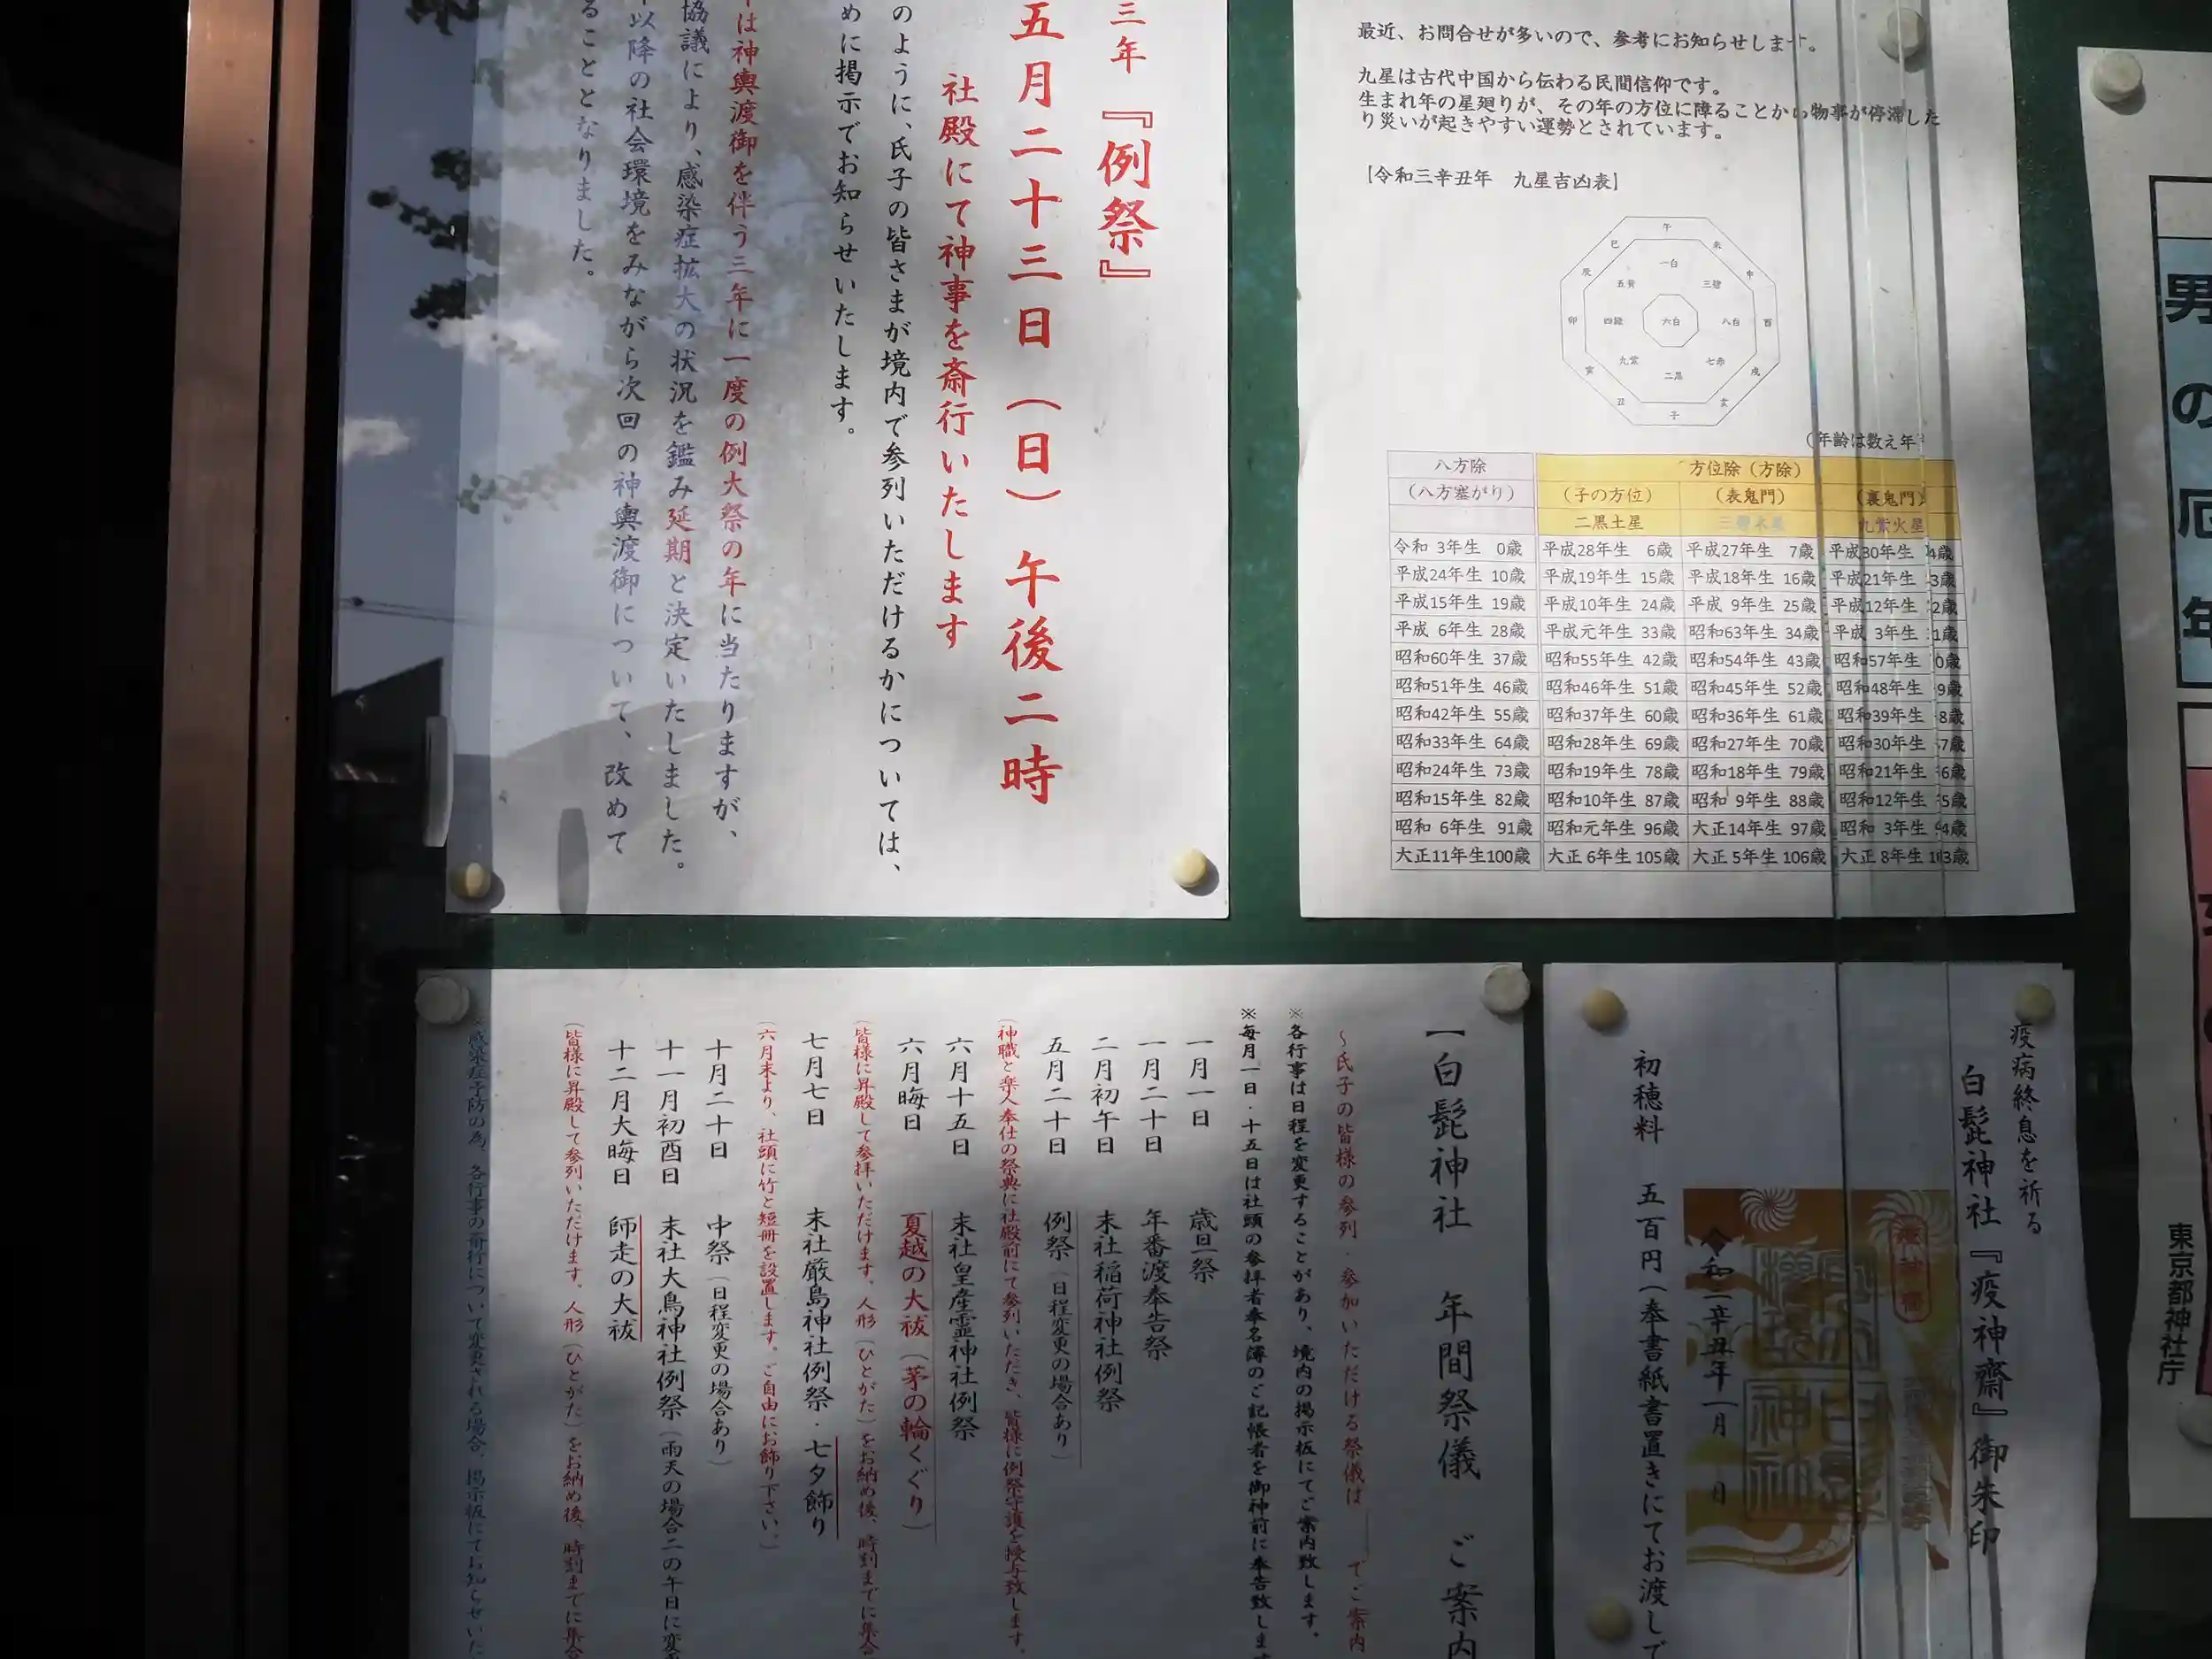 三年『例祭』
五月二十三日（日）午後二時
社殿にて神事を斎行いたします
のように、氏子の皆さまが境内で参列いただけるかについては、
めに掲示でお知らせいたします。
は神輿渡御を伴う三年に一度の例大祭の年に当たりますが、
協議により、感染症拡大の状況を鑑み延期と決定いたしました。
以降の社会環境をみながら次回の神輿渡御について、改めて
ることとなりました。
最近、お問合せが多いので、参考にお知らせします。
九星は古代中国から伝わる民間信仰です。
生まれ年の星廻りが、その年の方位に障ることから物事が停滞した
り災いが起きやすい運勢とされています。
【令和三辛丑年　九星吉凶表】
午
巳 未
辰 一白 申
五黄 三碧
卯 四緑 六白 八白 酉
九紫 七赤
寅 二黒 戌
丑 亥
子
（年齢は数え年
八方除 方位除（方除）
（八方塞がり） （子の方位） （表鬼門） （裏鬼門）
二黒土星 三碧木星 九紫火星
令和 3年生 0歳 平成28年生 6歳 平成27年生 7歳 平成30年生 4歳
平成24年生 10歳 平成19年生 15歳 平成18年生 16歳 平成21年生 3歳
平成15年生 19歳 平成10年生 24歳 平成 9年生 25歳 平成12年生 2歳
平成 6年生 28歳 平成元年生 33歳 昭和63年生 34歳 平成 3年生 1歳
昭和60年生 37歳 昭和55年生 42歳 昭和54年生 43歳 昭和57年生 0歳
昭和51年生 46歳 昭和46年生 51歳 昭和45年生 52歳 昭和48年生 9歳
昭和42年生 55歳 昭和37年生 60歳 昭和36年生 61歳 昭和39年生 8歳
昭和33年生 64歳 昭和28年生 69歳 昭和27年生 70歳 昭和30年生 7歳
昭和24年生 73歳 昭和19年生 78歳 昭和18年生 79歳 昭和21年生 6歳
昭和15年生 82歳 昭和10年生 87歳 昭和 9年生 88歳 昭和12年生 5歳
昭和 6年生 91歳 昭和元年生 96歳 大正14年生 97歳 昭和 3年生 4歳
大正11年生100歳 大正 6年生 105歳 大正 5年生 106歳 大正 8年生 103歳
男の厄年
東京都神社庁
【白髭神社　年間祭儀　ご案内
～氏子の皆様の参列・参加いただける祭儀は　　でご案内
※各行事は日程を変更することがあり、境内の掲示板にてご案内致します。
※毎月一日・十五日は社頭の参拝者奉名簿のご記帳者を御神前に奉告致しま
一月一日　歳旦祭
一月二十日　年番渡奉告祭
二月初午日　末社稲荷神社例祭
五月二十日　例祭（日程変更の場合あり）
（神職と楽人奉仕の祭典に社殿前にて参列いただき、皆様に例祭守護を授与致します。
六月十五日　末社皇産霊神社例祭
六月晦日　夏越の大祓（茅の輪くぐり）
（皆様に昇殿して参拝いただけます。人形（ひとがた）をお納め後、時刻までに集合
七月七日　末社厳島神社例祭・七夕飾り
（六月末より、社頭に竹と短冊を設置します。ご自由にお飾り下さい。）
十月二十日　中祭（日程変更の場合あり）
十一月初酉日　末社大鳥神社例祭（雨天の場合二の午日に変
十二月大晦日　師走の大祓
（皆様に昇殿して参列いただけます。人形（ひとがた）をお納め後、時刻までに集合
※感染症予防の為、各行事の斎行について変更される場合、掲示板にてお知らせいた
疫病終息を祈る
白髭神社『疫神齋』御朱印
令和三辛丑年一月　日
初穂料　五百円（奉書紙書置きにてお渡しで